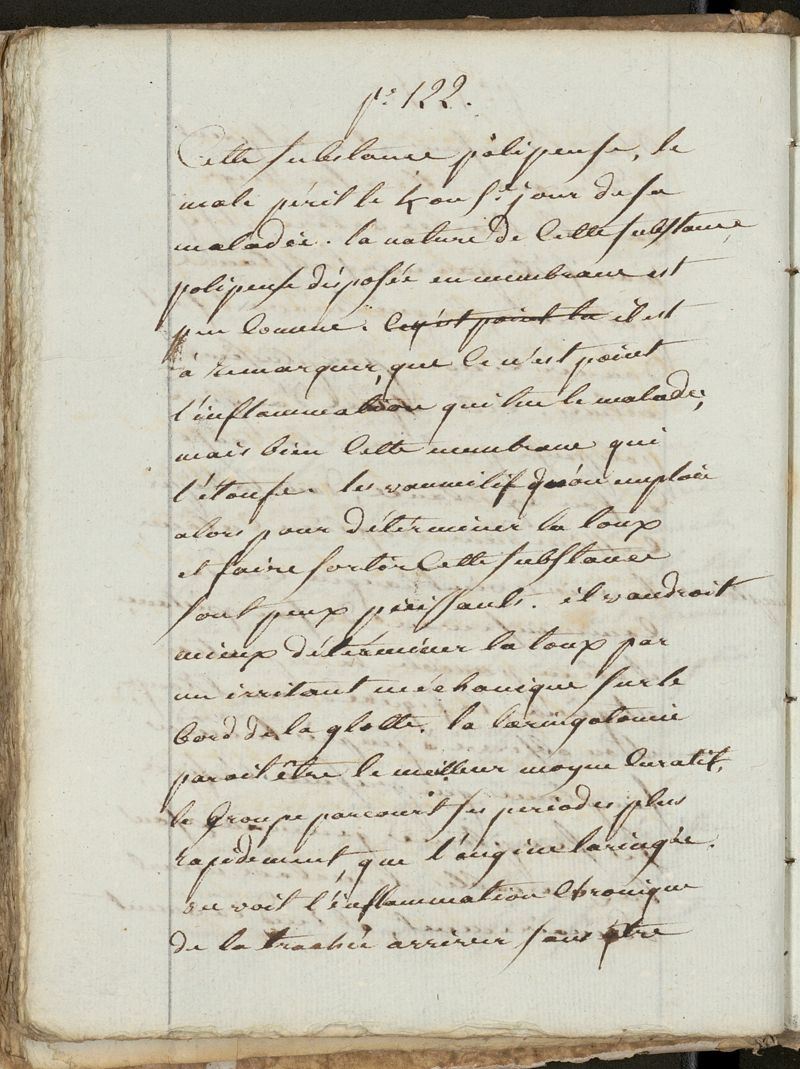 p.e 122.
Cette substance polipeuse, le
male périt le 4 ou 5.e jour de sa
maladie. la nature de cette substance
polipeuse disposée en membrane est
peu connue. ce n'est point la il est
à remarquer, que ce n'est point
l'inflammation qui tue le malade,
mais bien cette membrane qui
l'étoufe. les vomitif qu'on emploie
alors pour déterminer la toux
et faire sortir cette substance
sont peux puissants. il vaudroit
mieux déterminer la toux par
un irritant méchanique sur le
bord de la glotte. la laringotomie
paroit être le meilleur moyen curatif.
le Croupe parcourt ses periodes plus
rapidement, que l'angine laringée.
on voit l'inflammation chronique
de la trachée arriver sans être